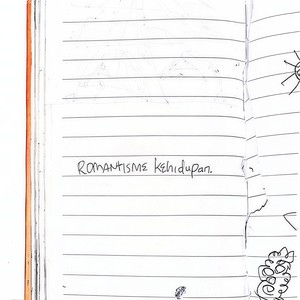 ROMANTISME kehidupan.